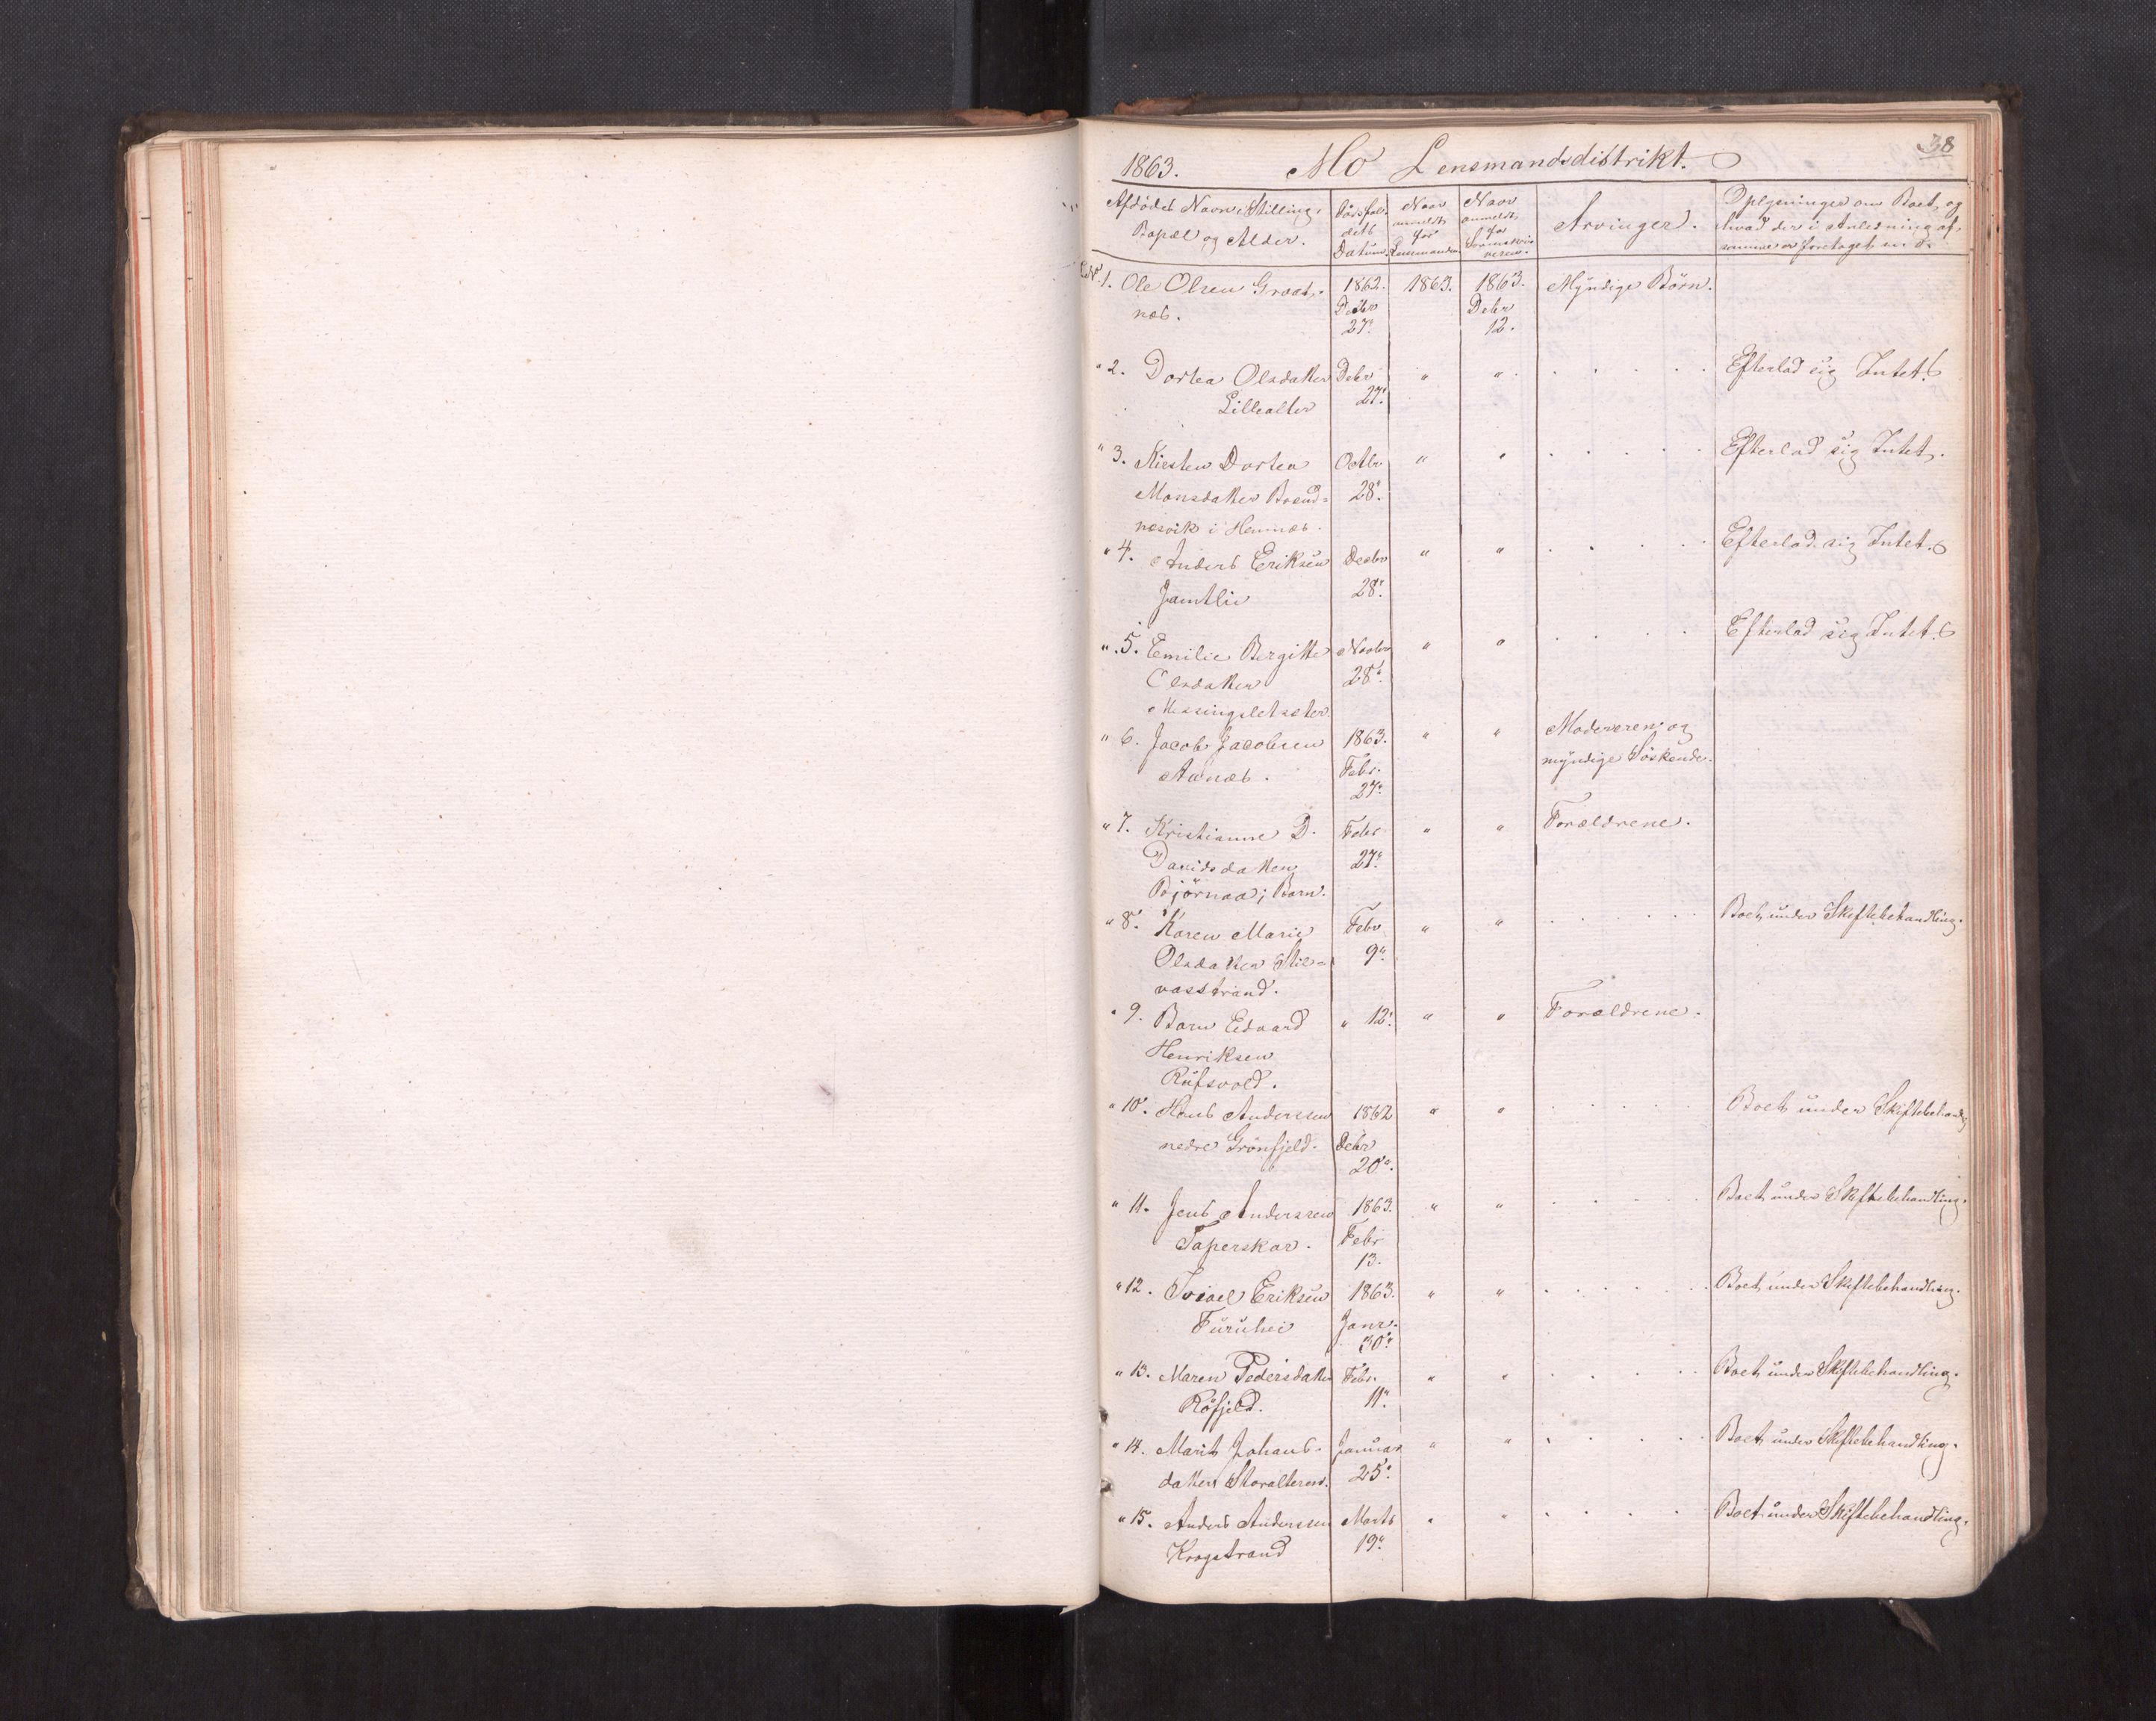 38
1863. Mo Lensmandsdistrikt.
Afdødes Navn, Stilling, Bopæl og Alder. Dødsfaldets Datum. Naar anmeldt for Lensmanden. Naar anmeldt for Sorenskriveren. Arvinger. Oplysninger om Boet, og hvad der i Anledning af samme er foretaget m. v.
No 1. Ole Olsen Graat- 1862. 1863. 1863. Myndige Börn.
næs. Decbr Debr
27. 12.
" 2. Dortea Olsdatter Debr " " Efterlod sig Intet.
Lillealter 27.
" 3. Kirsten Dortea Octbr " " Efterlod sig Intet.
Monsdatter Brend= 28.
nesvik i Hemnæs.
" 4. Anders Eriksen Decbr " " Efterlod sig Intet.
Jamtlie 28.
" 5. Emilie Bergitte Novbr " " Efterlod sig Intet.
Olsdatter 28.
Messingsletseter
" 6. Jacob Jacobsen 1863. " " Moderen og
Aanæs. Febr. myndige Söskende.
27.
" 7. Kristianne D. Febr " " Forældrene.
Davidsdatter 27.
Björnaa; Barn.
" 8. Karen Marie Febr " " Boet under Skiftebehandling.
Olsdatter Stil= 9.
vasstrand.
" 9. Barn Edvard " 12. " " Forældrene.
Henriksen
Rufsvold.
" 10. Hans Anderssen 1862 " " Boet under Skiftebehandlg
nedre Grönfjeld. Debr
20.
" 11. Jens Anderssen 1863. " " Boet under Skiftebehandling.
Taperskar. Febr
13.
" 12. Eriksen 1863. " " Boet under Skiftebehandling.
Furuhei Janr.
30.
" 13. Maren Pedersdatter Febr. " " Boet under Skiftebehandling.
Röfjeld. 11.
" 14. Marit Johans- Januar " " Boet under Skiftebehandling.
datter Storalteren. 25.
" 15. Anders Anderssen Marts " " Boet under Skiftebehandling.
Krogstrand 19.